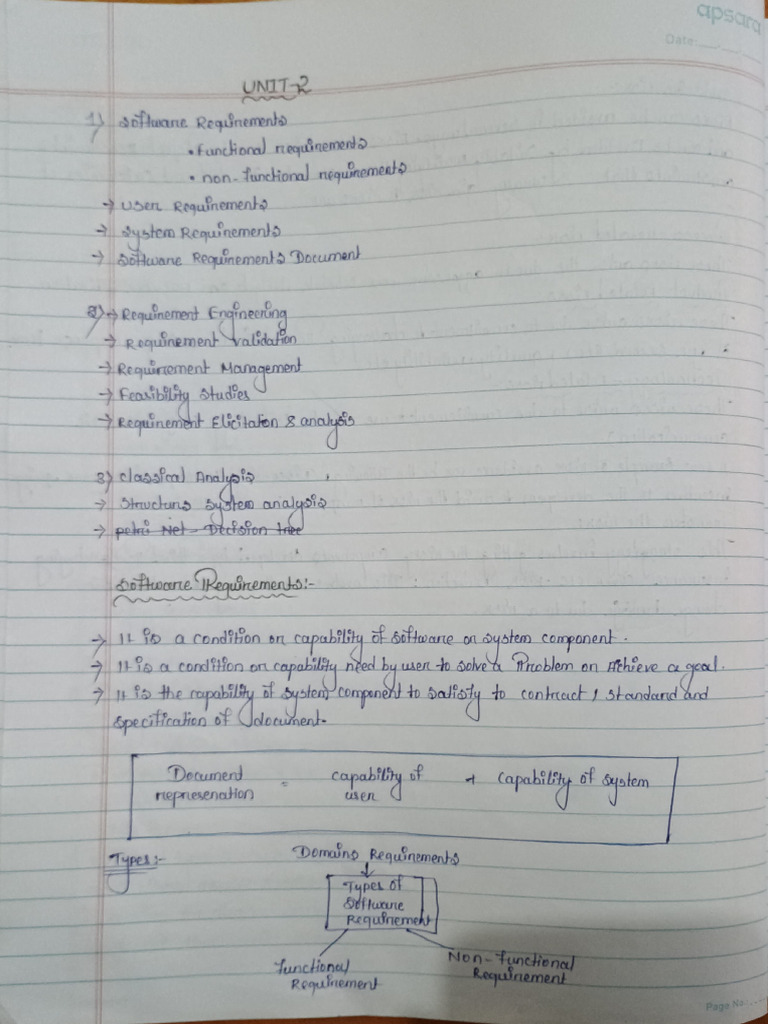 apsara
Date:
UNIT-2
1) Software Requirements
• functional requirements
• non-functional requirements
→ User Requirements
→ System Requirements
→ Software Requirements Document
2) → Requirement Engineering
→ Requirement validation
→ Requirement Management
→ Feasibility Studies
→ Requirement Elicitation & analysis
3) Classical Analysis
→ Structurs System analysis
→ petri Net - Decision tree
Software Requirements:-
→ It is a condition or capability of software or system component.
→ It is a condition or capability need by user to solve a Problem or Achieve a goal.
→ It is the capability of system component to satisfy to contract, standard and
specification of document.
Document represenation = capability of user + Capability of System
Types:-
Domains Requirements
Types of
Software
Requirement
Functional
Requirement
Non-Functional
Requirement
Page No.: